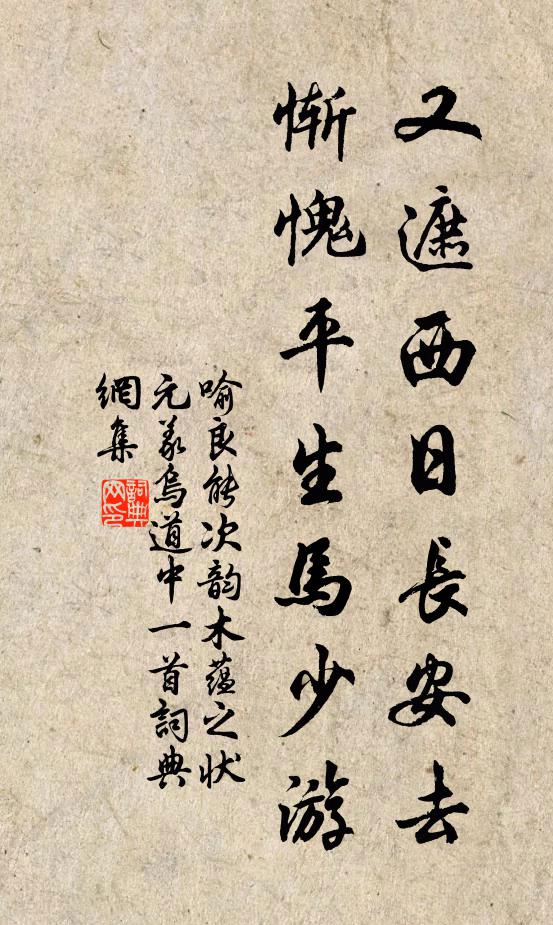 又遮西日長安去
慚愧平生馬少游
喻良能次韵木蕴之状
元義烏道中一首詞典
網集
詞典網印